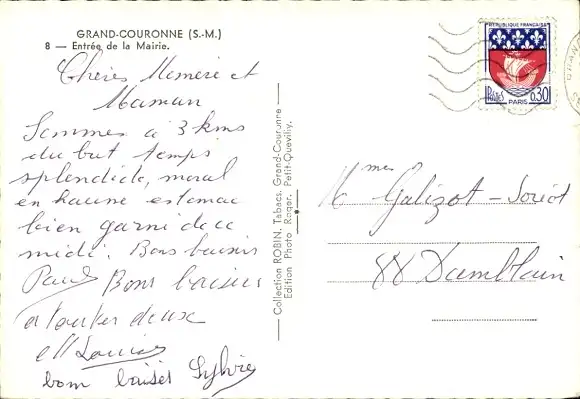 GRAND-COURONNE (S.-M.)
8 — Entrée de la Mairie.
Chères Mémère et
Maman
Sommes à 3 kms
du but temps
splendide, moral
en hausse estomac
bien garni de ce
midi. Bons baisers
Paul Bons baisers
à toutes deux
Louise
bon baiser Sylvie
Collection ROBIN, Tabacs, Grand-Couronne
Edition Photo Roger, Petit-Quevilly.
REPUBLIQUE FRANÇAISE
POSTES 0,30
PARIS
Mmes Galizot - Soriot
88 Damblain